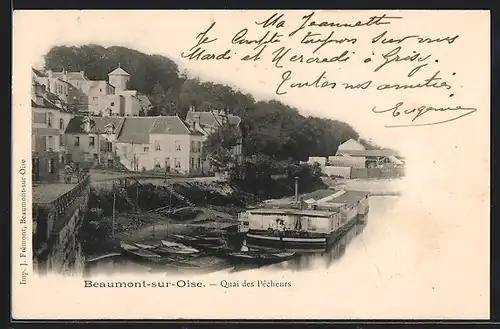 Ma Jeannette
Je Compte toujours sur vous
Mardi et Mercredi à Grisy.
Toutes nos amitiés
Eugène
Imp. J. Frémont, Beaumont-sur-Oise
Beaumont-sur-Oise. — Quai des Pêcheurs